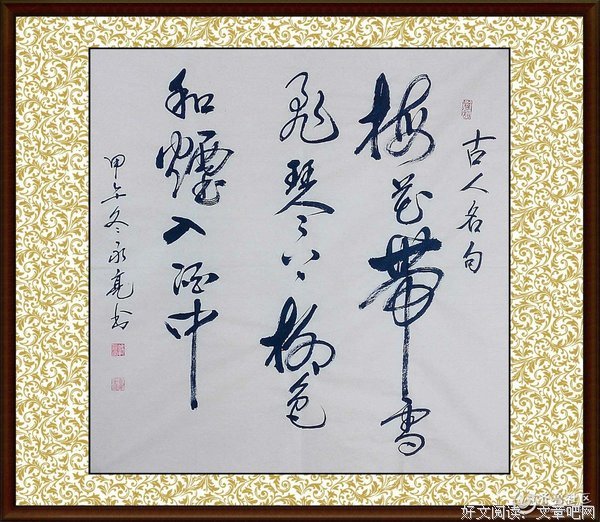 古人名句
梅花帶雪
飛琴上柳色
和煙入酒中
甲午冬永亮书
社区
好文阅读、文章吧网